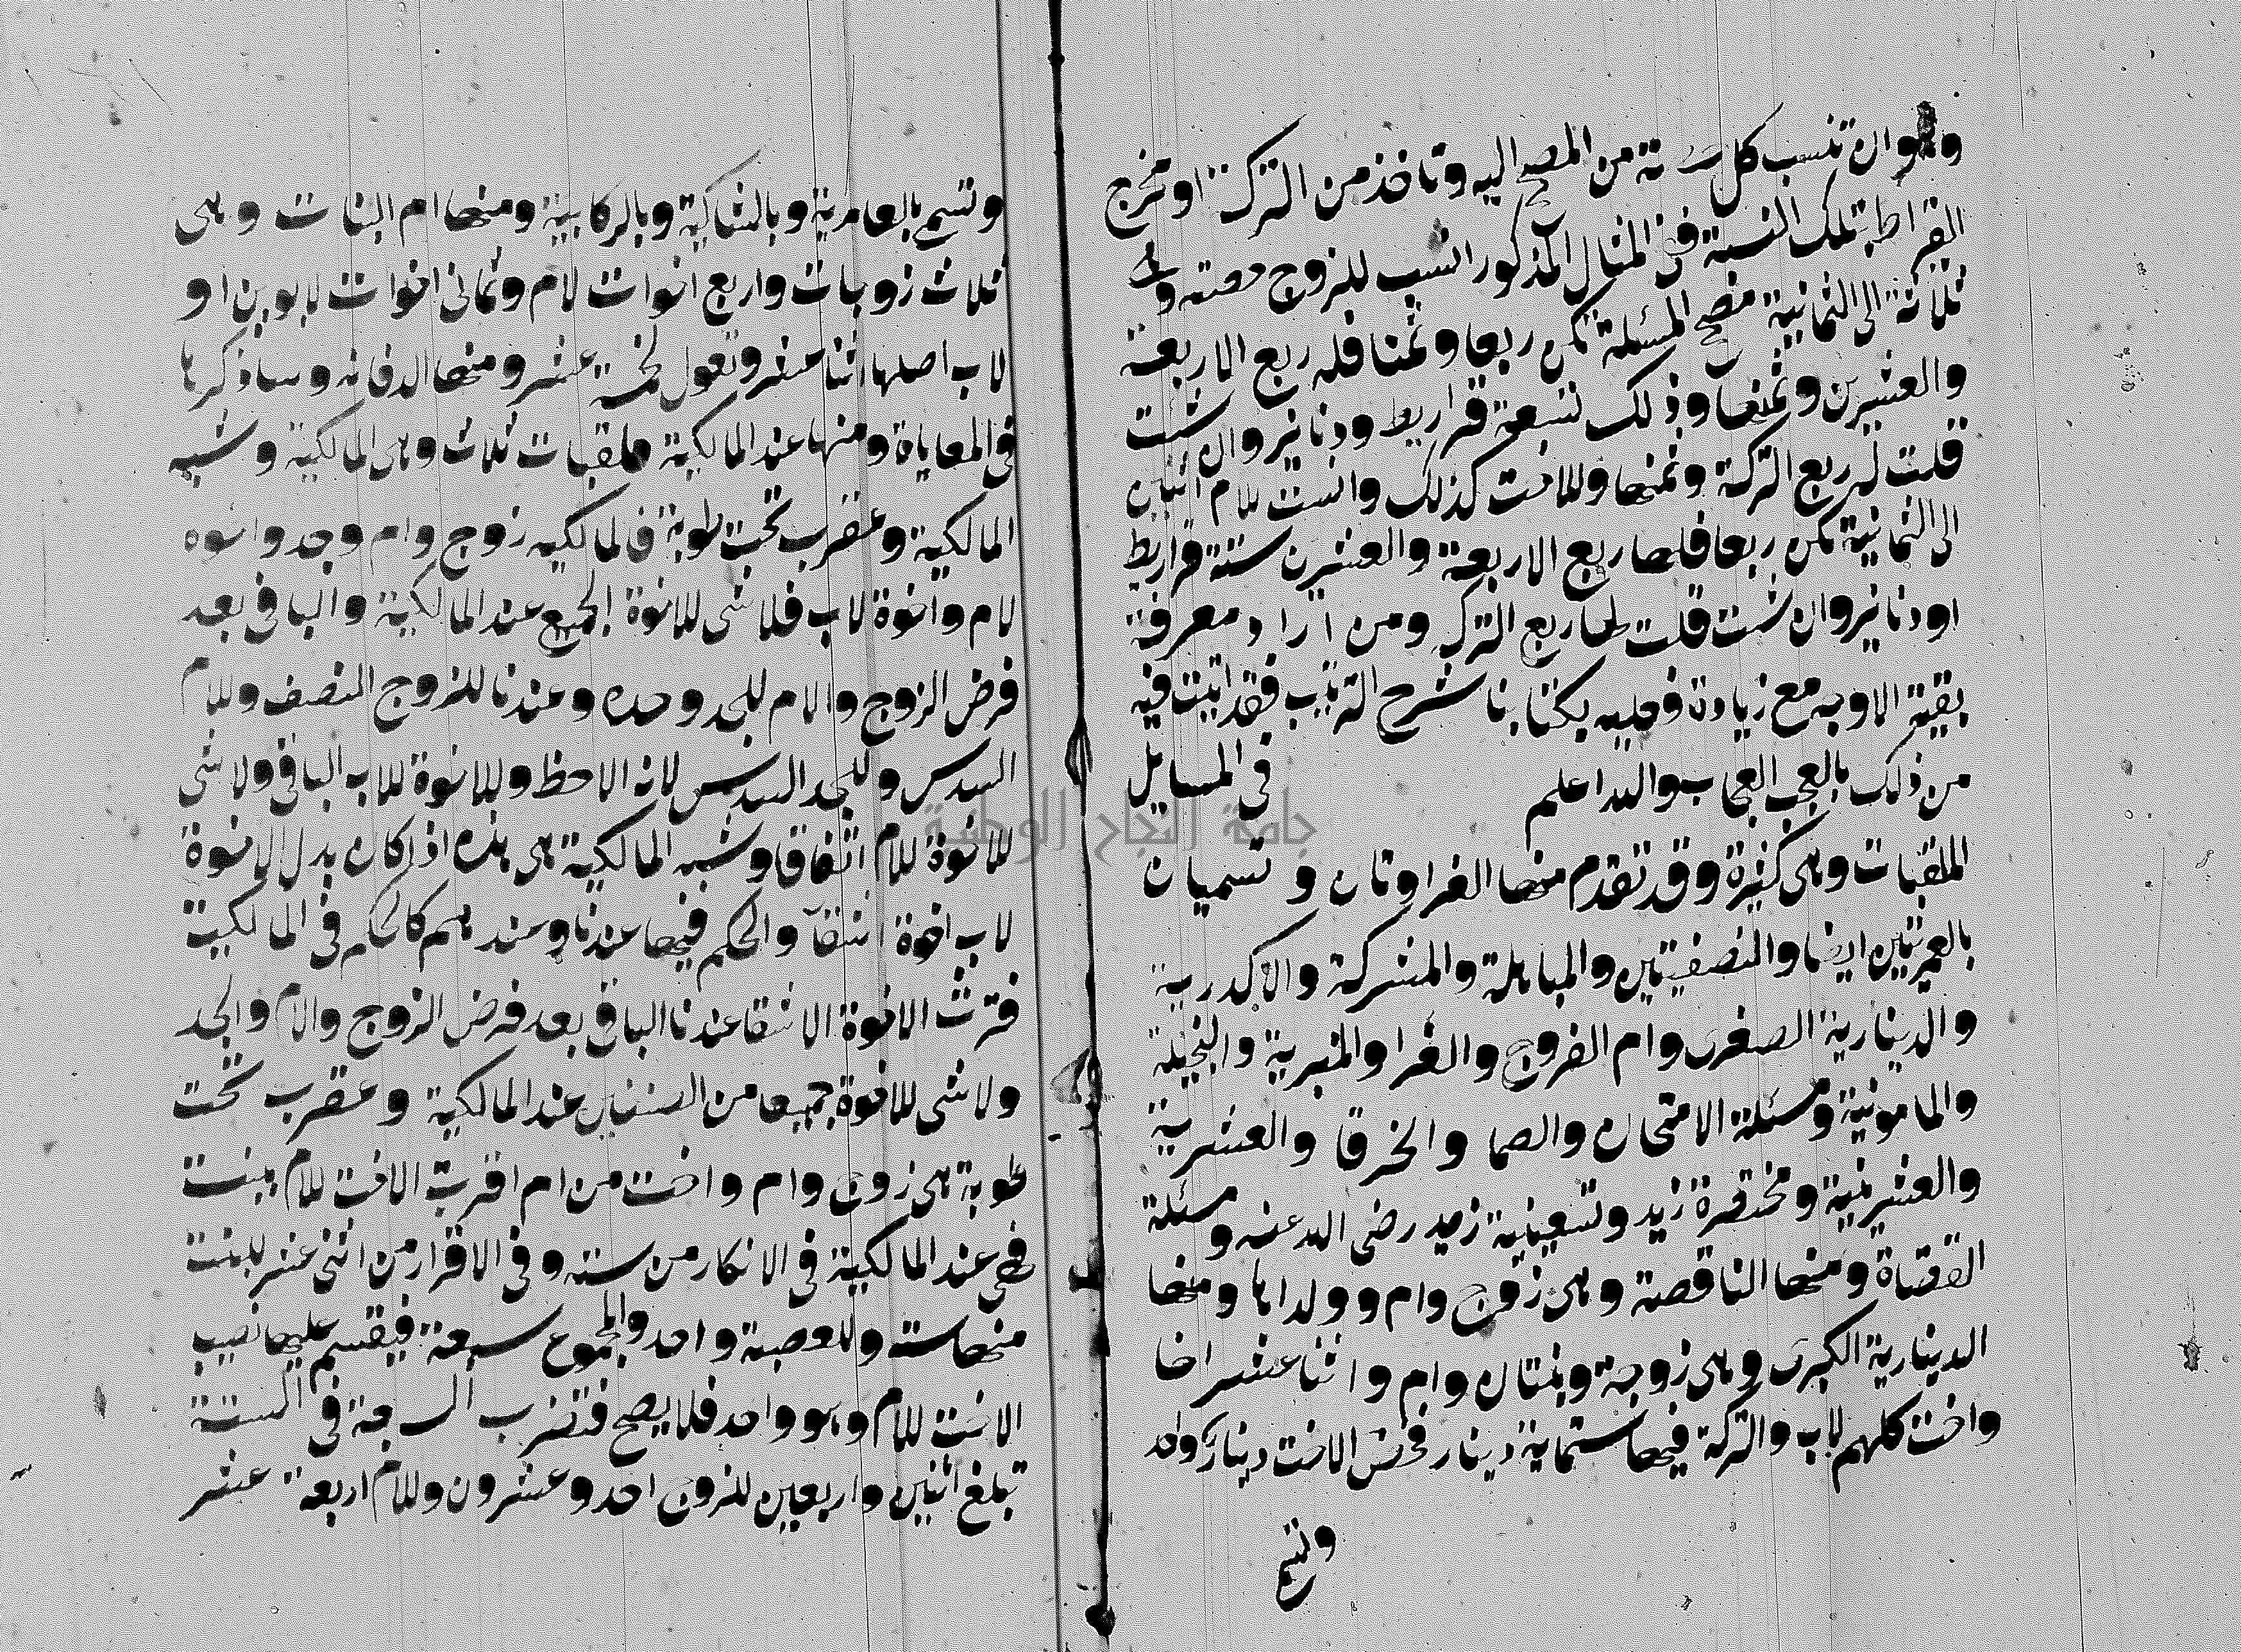 وهو ان تنسب كل حصة من المصح اليه وتاخذ من التركة او مخرج
القراط بتلك النسبة ففي المثال المذكور انسب للزوج حصته وهي
ثلاثة الى الثمانية مصح المسئلة تكن ربعا وثمنا فله ربع الاربعة
والعشرين وثمنها وذلك تسعة قراريط ودنانير وان شئت
قلت له ربع التركة وثمنها وللاخت كذلك وانسب للام اثنين
الى الثمانية تكن ربعا فلها ربع الاربعة والعشرين ستة قراريط
او دنانير وان شئت قلت لها ربع التركة ومن اراد معرفة
بقية الاوجه مع زيادة فعليه بكتابنا شرح الترتيب فقد اتيت فيه
من ذلك بالعجب العجاب والله اعلم في المسايل
الملقبات وهي كثيرة وقد تقدم منها الغراوتان وتسميان
بالعمريتين ايضا والنصفيتين والمباهلة والمشركة والاكدرية
والدينارية الصغرى وام الفروج والغرا والمنبرية والبخيلة
والمامونية ومسئلة الامتحان والصما والخرقا والعشرية
والعشرينية ومختصرة زيد وتسعينية زيد رضي الله عنه ومسئلة
القضاة ومنها الناقصة وهي زوج وام وولداها ومنها
الدينارية الكبرى وهي زوجة وبنتان وام واثنا عشر اخا
واخت كلهم لاب والتركة فيها ستماية دينار فخص الاخت دينار واحد
وتسمى
وتسمى بالعامرية وبالشاكية وبالركابية ومنها ام البنات وهي
ثلاث زوجات واربع اخوات لام وثماني اخوات لابوين او
لاب اصلها اثنا عشر وتعول لخمسة عشر ومنها الدفانه وساذكرها
في المعاياة ومنها عند المالكية ملقبات ثلاث وهي المالكية وشبه
المالكية وعقرب تحت طوبة فالمالكيه زوج وام وجد واخوه
لام واخوة لاب فلا شي للاخوة الجميع عند المالكية والباقي بعد
فرض الزوج والام للجد وحده وعندنا للزوج النصف وللام
السدس وللجد السدس لانه الاحظ وللاخوة للاب الباقي ولا شي
للاخوة للام اتفاقا وشبه المالكية هي هذه اذا كان بدل الاخوة
لاب اخوة اشقآ والحكم فيها عندنا وعندهم كالحكم في المالكية
فترث الاخوة الاشقا عندنا الباقي بعد فرض الزوج والام والجد
ولا شي للاخوة جميعا من الصنفين عند المالكية وعقرب تحت
طوبة هي زوج وام واخت من ام اقرت الاخت للام ببنت
فهي عند المالكية في الانكار من ستة وفي الاقرار من اثني عشر للبنت
منها ستة وللعصبة واحد والمجموع سبعة فيقسم عليها نصيب
الاخت للام وهو واحد فلا يصح فتضرب السبعة في الستة
تبلغ اثنين واربعين للزوج احد وعشرون وللام اربعة عشر
جامعة النجاح الوطنية